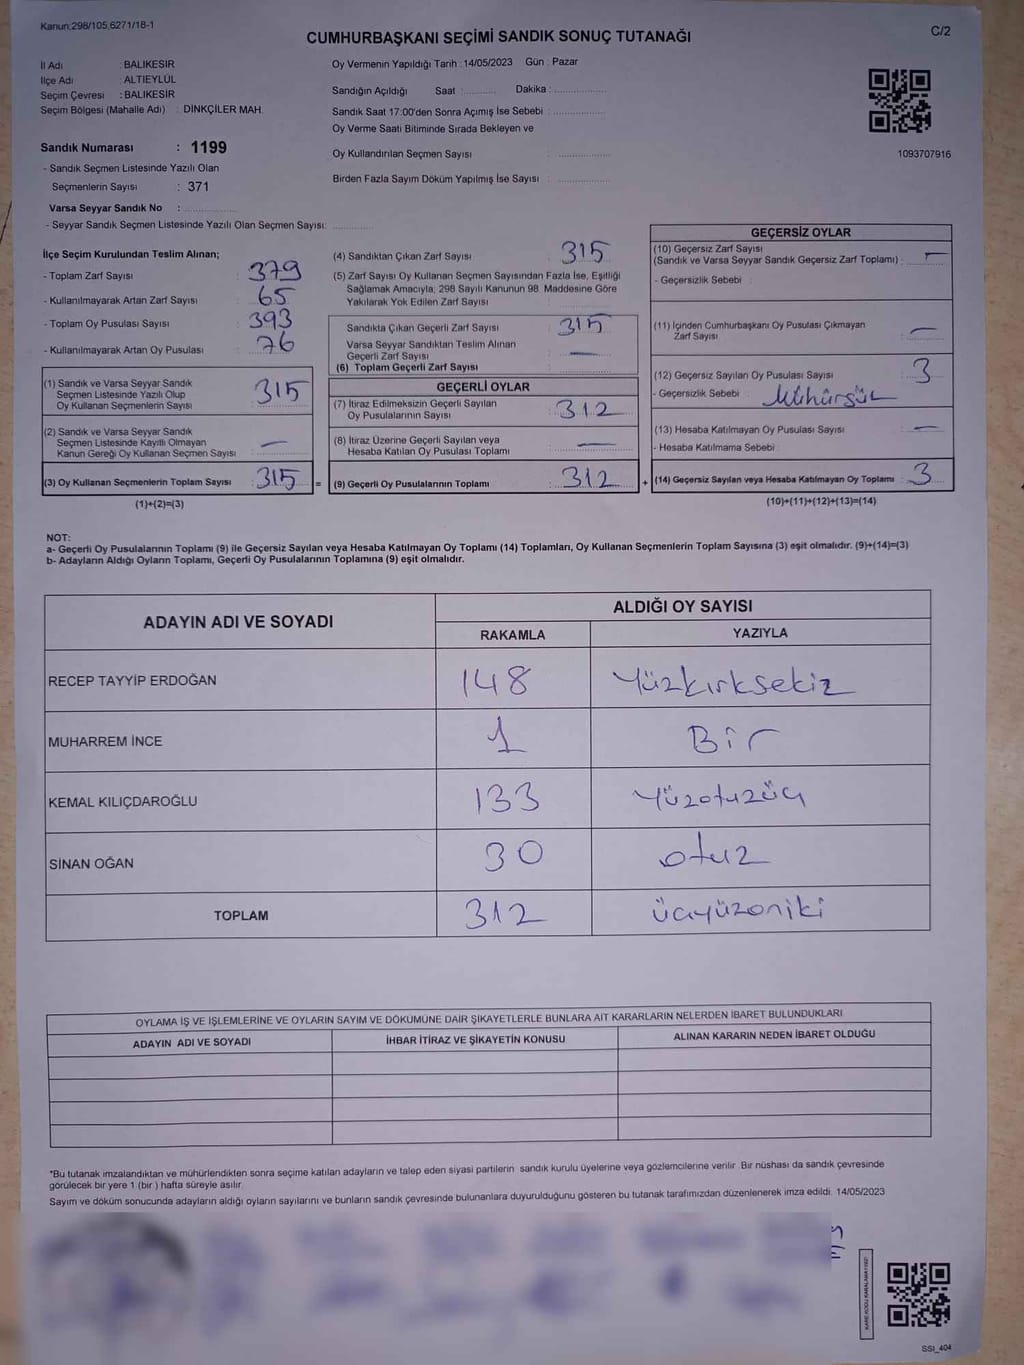 Kanun:298/105,6271/18-1
C/2
CUMHURBAŞKANI SEÇİMİ SANDIK SONUÇ TUTANAĞI
İl Adı : BALIKESİR
İlçe Adı : ALTIEYLÜL
Seçim Çevresi : BALIKESİR
Seçim Bölgesi (Mahalle Adı) : DİNKÇİLER MAH.
Sandık Numarası : 1199
- Sandık Seçmen Listesinde Yazılı Olan
Seçmenlerin Sayısı : 371
Varsa Seyyar Sandık No :
- Seyyar Sandık Seçmen Listesinde Yazılı Olan Seçmen Sayısı:
Oy Vermenin Yapıldığı Tarih : 14/05/2023 Gün : Pazar
Sandığın Açıldığı Saat : Dakika :
Sandık Saat 17:00'den Sonra Açımış İse Sebebi :
Oy Verme Saati Bitiminde Sırada Bekleyen ve
Oy Kullandırılan Seçmen Sayısı :
Birden Fazla Sayım Döküm Yapılmış İse Sayısı :
1093707916
İlçe Seçim Kurulundan Teslim Alınan;
- Toplam Zarf Sayısı : 379
- Kullanılmayarak Artan Zarf Sayısı : 65
- Toplam Oy Pusulası Sayısı : 393
- Kullanılmayarak Artan Oy Pusulası : 76
(1) Sandık ve Varsa Seyyar Sandık
Seçmen Listesinde Yazılı Olup
Oy Kullanan Seçmenlerin Sayısı : 315
(2) Sandık ve Varsa Seyyar Sandık
Seçmen Listesinde Kayıtlı Olmayan
Kanun Gereği Oy Kullanan Seçmen Sayısı : —
(3) Oy Kullanan Seçmenlerin Toplam Sayısı : 315 =
(1)+(2)=(3)
(4) Sandıktan Çıkan Zarf Sayısı : 315
(5) Zarf Sayısı Oy Kullanan Seçmen Sayısından Fazla İse, Eşitliği
Sağlamak Amacıyla; 298 Sayılı Kanunun 98. Maddesine Göre
Yakılarak Yok Edilen Zarf Sayısı :
Sandıkta Çıkan Geçerli Zarf Sayısı : 315
Varsa Seyyar Sandıktan Teslim Alınan
Geçerli Zarf Sayısı : —
(6) Toplam Geçerli Zarf Sayısı :
GEÇERLİ OYLAR
(7) İtiraz Edilmeksizin Geçerli Sayılan
Oy Pusulalarının Sayısı : 312
(8) İtiraz Üzerine Geçerli Sayılan veya
Hesaba Katılan Oy Pusulası Toplamı : —
(9) Geçerli Oy Pusulalarının Toplamı : 312 +
GEÇERSİZ OYLAR
(10) Geçersiz Zarf Sayısı
(Sandık ve Varsa Seyyar Sandık Geçersiz Zarf Toplamı) : —
- Geçersizlik Sebebi :
(11) İçinden Cumhurbaşkanı Oy Pusulası Çıkmayan
Zarf Sayısı : —
(12) Geçersiz Sayılan Oy Pusulası Sayısı : 3
- Geçersizlik Sebebi : Mühürsüz
(13) Hesaba Katılmayan Oy Pusulası Sayısı : —
- Hesaba Katılmama Sebebi :
(14) Geçersiz Sayılan veya Hesaba Katılmayan Oy Toplamı : 3
(10)+(11)+(12)+(13)=(14)
NOT:
a- Geçerli Oy Pusulalarının Toplamı (9) ile Geçersiz Sayılan veya Hesaba Katılmayan Oy Toplamı (14) Toplamları, Oy Kullanan Seçmenlerin Toplam Sayısına (3) eşit olmalıdır. (9)+(14)=(3)
b- Adayların Aldığı Oyların Toplamı, Geçerli Oy Pusulalarının Toplamına (9) eşit olmalıdır.
ADAYIN ADI VE SOYADI
ALDIĞI OY SAYISI
RAKAMLA YAZIYLA
RECEP TAYYİP ERDOĞAN 148 Yüzkırksekiz
MUHARREM İNCE 1 Bir
KEMAL KILIÇDAROĞLU 133 Yüzotuzüç
SİNAN OĞAN 30 otuz
TOPLAM 312 üçyüzoniki
OYLAMA İŞ VE İŞLEMLERİNE VE OYLARIN SAYIM VE DÖKÜMÜNE DAİR ŞİKAYETLERLE BUNLARA AİT KARARLARIN NELERDEN İBARET BULUNDUKLARI
ADAYIN ADI VE SOYADI İHBAR İTİRAZ VE ŞİKAYETİN KONUSU ALINAN KARARIN NEDEN İBARET OLDUĞU
*Bu tutanak imzalandıktan ve mühürlendikten sonra seçime katılan adayların ve talep eden siyasi partilerin sandık kurulu üyelerine veya gözlemcilerine verilir. Bir nüshası da sandık çevresinde
görülecek bir yere 1 (bir ) hafta süreyle asılır.
Sayım ve döküm sonucunda adayların aldığı oyların sayılarını ve bunların sandık çevresinde bulunanlara duyurulduğunu gösteren bu tutanak tarafımızdan düzenlenerek imza edildi. 14/05/2023
KARE KODU KARALAMAYINIZ!
SSI_404